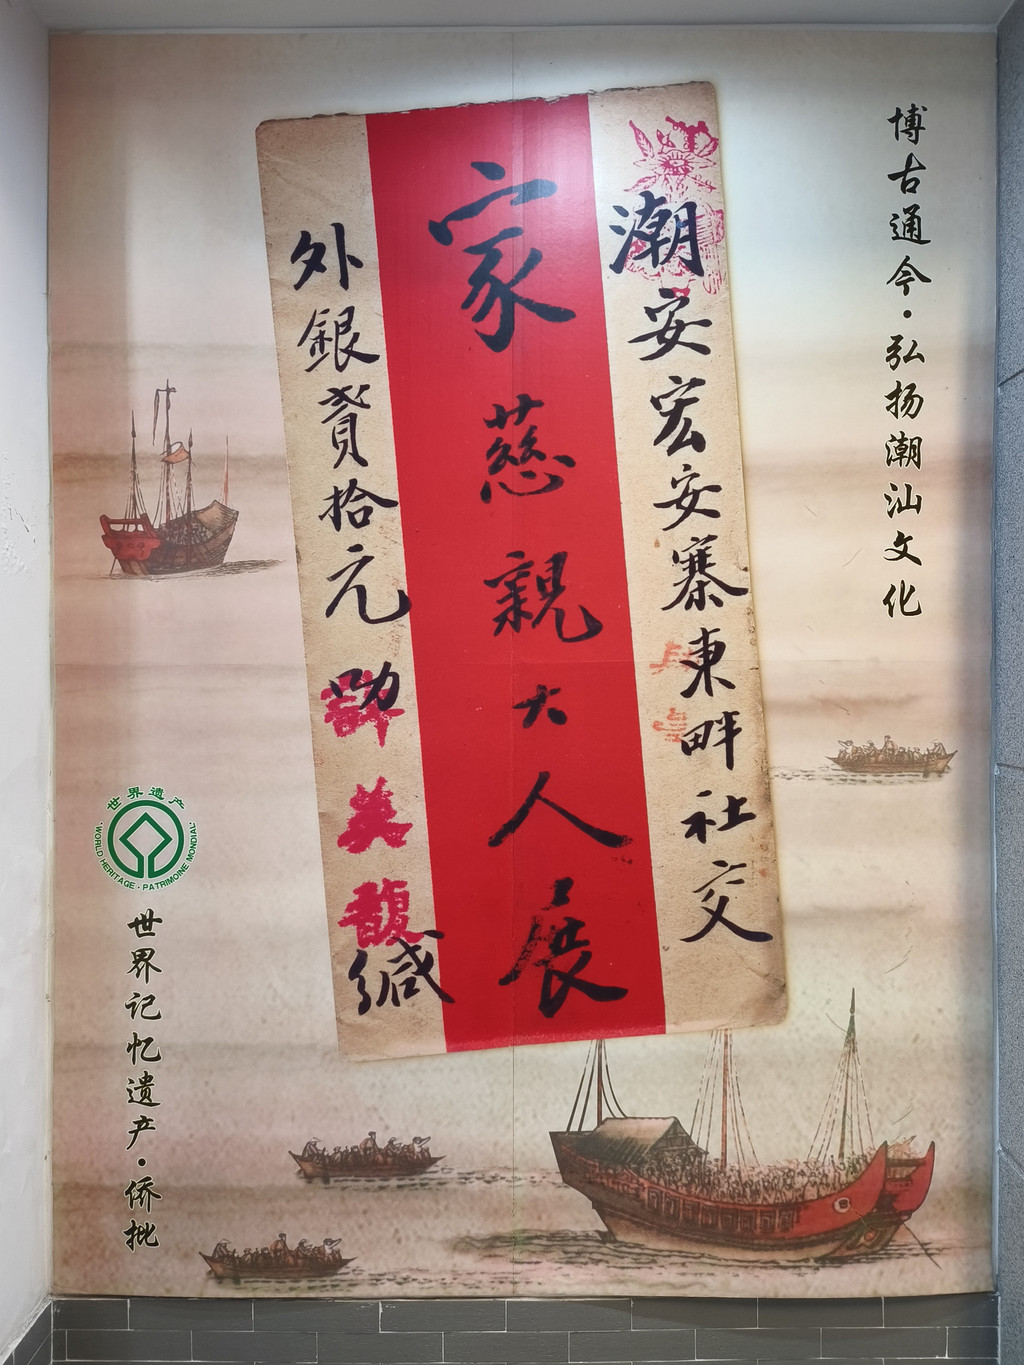 博古通今·弘扬潮汕文化
潮安宏安寨東畔社交
家慈親大人展
外銀賚拾元
美馥緘
世界遗产
WORLD HERITAGE · PATRIMOINE MONDIAL
世界记忆遗产·侨批